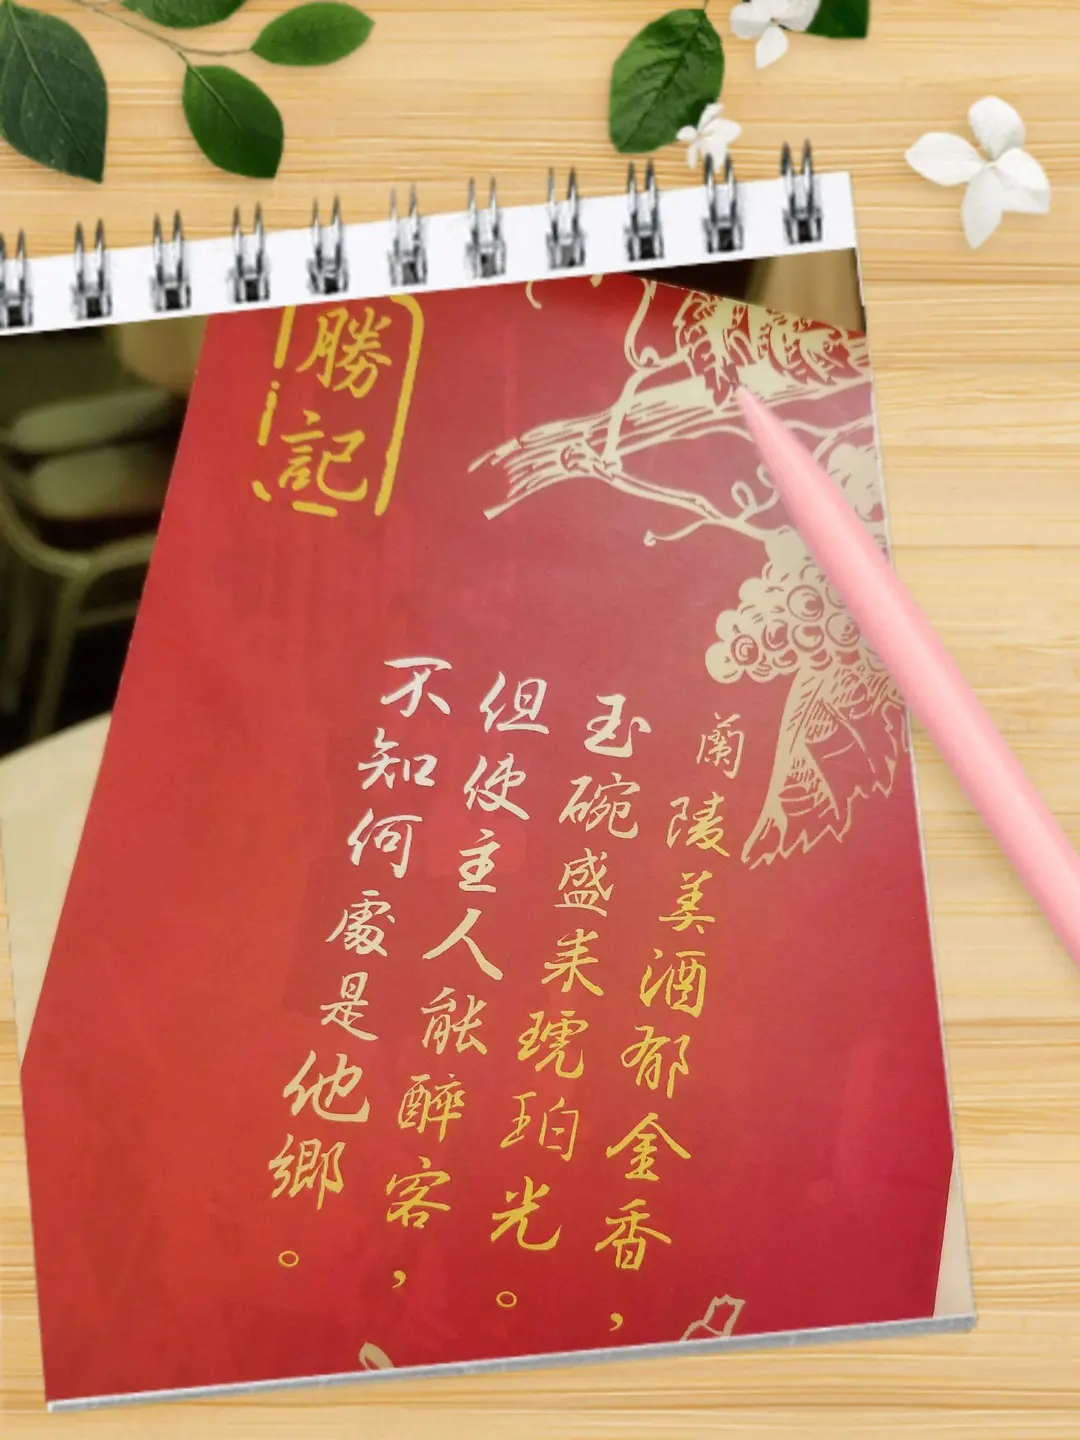 勝記
蘭陵美酒郁金香，
玉碗盛来琥珀光。
但使主人能醉客，
不知何處是他鄉。